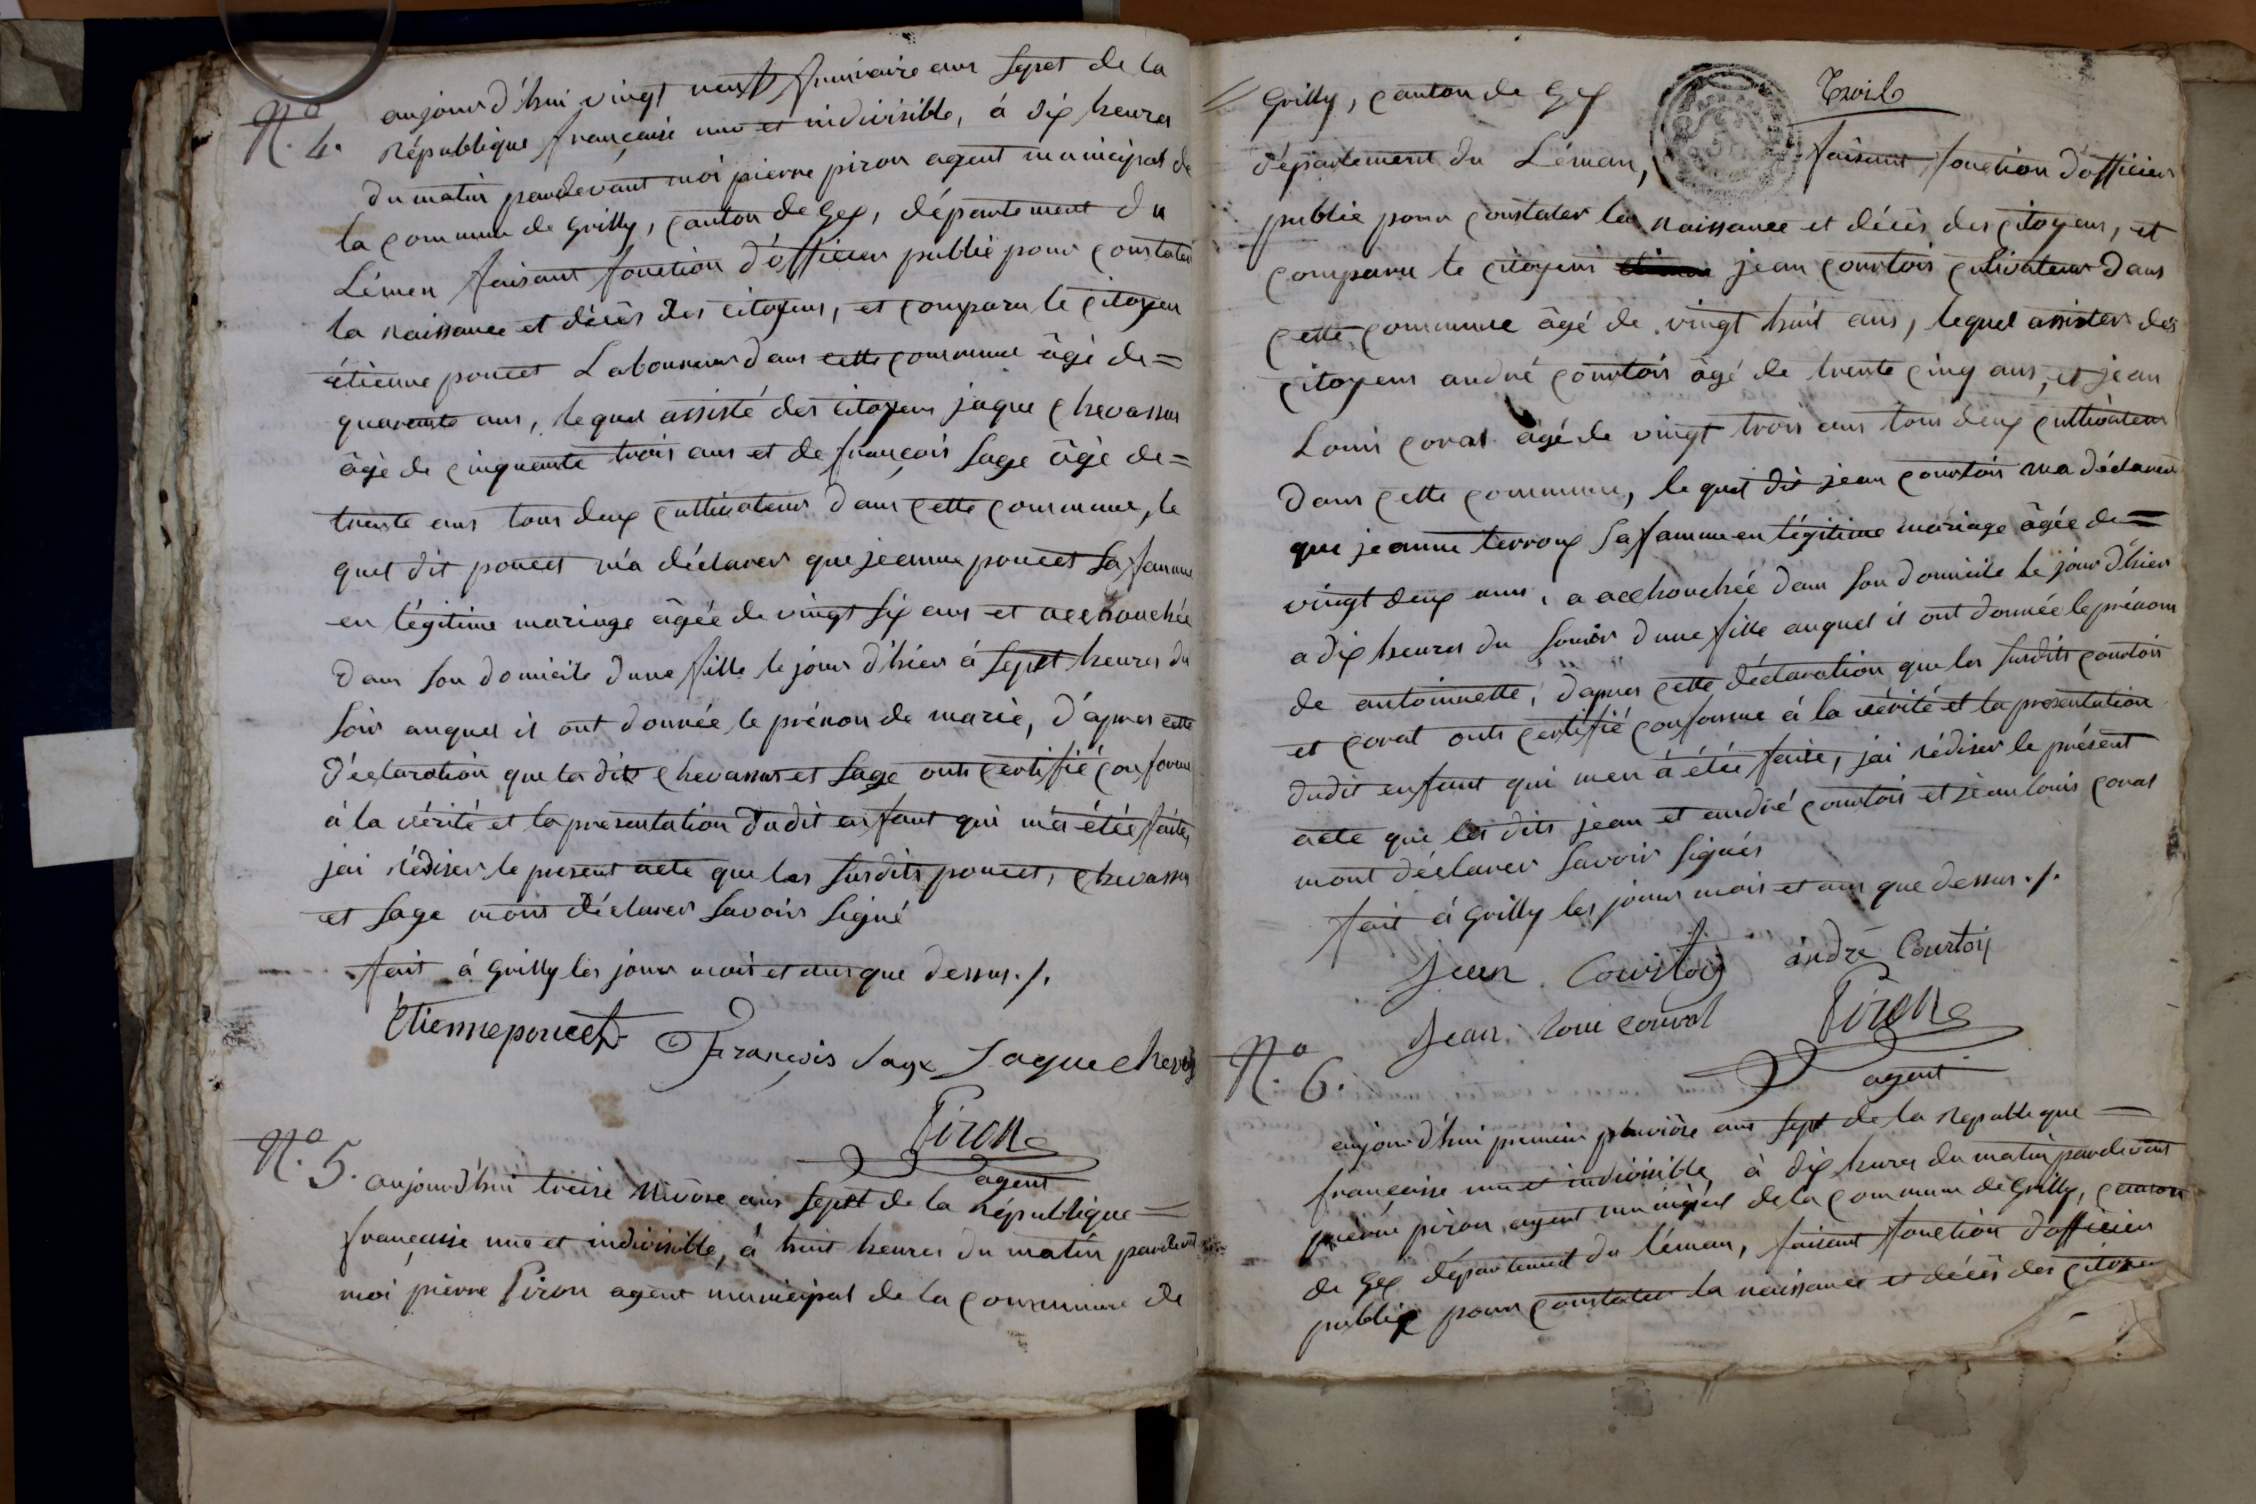 N.o 4. aujourd'hui vingt neuf frimaire ans sept de la
République française une et indivisible, à dix heures
du matin pardevant moi pierre piron agent municipal de
la commune de Grilly, canton de Gex, département du
Léman faisant fonction d'officier public pour constater
la naissance et décès des citoyens, et comparu le citoyen
étienne poncet Laboureur dans cette commune âgé de =
quarente ans, lequel assisté des citoyens jaque chevassus
âgé de cinquante trois ans et de françois sage âgé de =
trente ans tous deux cultivateurs dans cette commune, le
quel dit poncet m'a déclarer que jeanne poncet sa famme
en légitime mariage âgée de vingt six ans et acchouchée
dans son domicile d'une fille le jour d'hier à sept heures du
soir auquel il ont donnée le prénon de marie, d'apres cette
déclaration que la dits chevassus et sage onts certifié conforme
à la vérité et la presentation dudit enfant qui m'a étée faite,
jai rédiser le present acte que les susdits poncet, chevassus
et sage mons déclarer savoir signé
fait à Grilly les jour mois et ans que dessus ./.
étienne poncet françois sage Jaque chevas
Piron
agent
N.o 5. aujourd'hui treise Nivose ans sept de la République =
française une et indivisible, à huit heures du matin pardevant
moi pierre Piron agent municipal de la commune de
Trois
Grilly, canton de Gex
département du Léman, faisant fonction d'officier
public pour constater la naissance et décès des citoyens, et
comparu le citoyens jean courtois cultivateur dans
cette commune âgé de vingt huit ans, lequel assister des
citoyens andré courtois âgé de trente cinq ans, et jean
Louis corat âgé de vingt trois ans tous deux cultivateur
dans cette commune, le quel dit jean courtois ma déclarer
que jeanne terroux sa famme en légitime mariage âgée de =
vingt deux ans, a acchouchée dans son domicile le jour d'hier
a dix heures du souir dune fille auquel il ont donnée le prénom
de antoinnette, d'apres cette déclaration que les susdits courtois
et corat onts certifié conforme à la vérité et la presentation
dudit enfant qui men à étée faite, j'ai rédiser le présent
acte que les dits jean et andré courtois et jean louis corat
mont déclarer savoir signés
fait à Grilly les jours mois et ans que dessus ./.
Jean Courtois andré Courtois
Jean Loui corat Piron
agent
N.o 6.
aujourd'hui premier pluviôse ans sept de la Republeque =
française une et indivisible, à dix heures du matin pardevant
pierre piron agent municipal de la commune de Grilly, canton
de Gex département du léman, faisant fonction d'officier
public pour constater la naissance et décès des citoyen